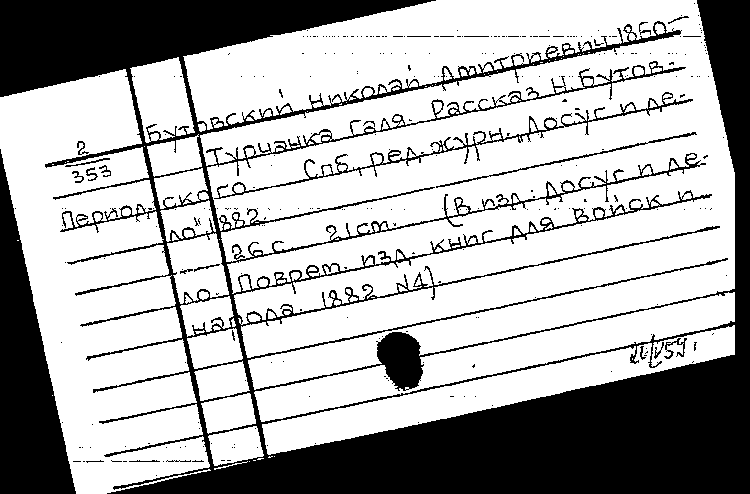 Бутовский, Николай Дмитриевич, 1850-
2
353
Турчанка Галя. Рассказ Н. Бутов-
Период. ского. Спб, ред. журн. „Досуг и де-
ло", 1882.
26 с 21 ст. (В изд: Досуг и де-
ло. Поврем. изд. книг для войск и
народа. 1882 N4).